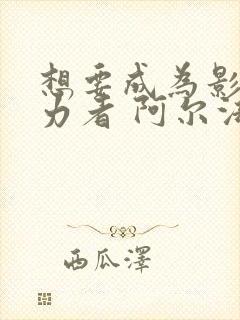 想要成为影
力者 阿尔法
西瓜澤